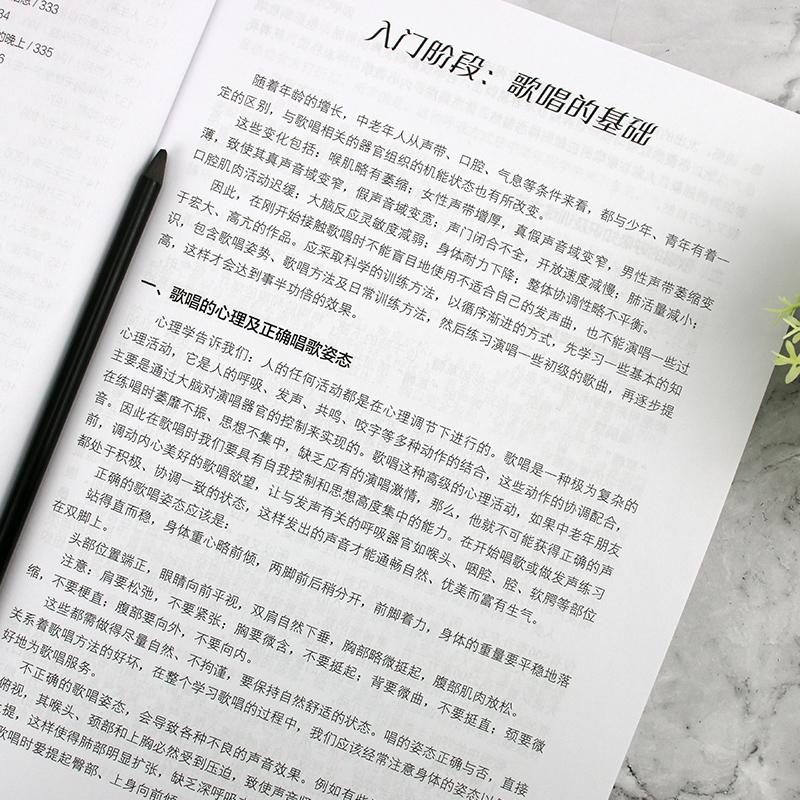 / 333
34
的晚上 / 335
6
入门阶段：歌唱的基础
随着年龄的增长，中老年人从声带、口腔、气息等条件来看，都与少年、青年有着一
定的区别，与歌唱相关的器官组织的机能状态也有所改变。
这些变化包括：喉肌略有萎缩；女性声带增厚，真假声音域变窄，男性声带萎缩变
薄，致使其真声音域变窄，假声音域变宽；声门闭合不全，开放速度减慢；肺活量减小；
口腔肌肉活动迟缓，大脑反应灵敏度减弱；身体耐力下降；整体协调性略不平衡。
因此，在刚开始接触歌唱时不能盲目地使用不适合自己的发声曲，也不能演唱一些过
于宏大、高亢的作品。应采取科学的训练方法，以循序渐进的方式，先学习一些基本的知
识，包含歌唱姿势、歌唱方法及日常训练方法，然后练习演唱一些初级的歌曲，再逐步提
高，这样才会达到事半功倍的效果。
一、歌唱的心理及正确唱歌姿态
心理学告诉我们：人的任何活动都是在心理调节下进行的。歌唱是一种极为复杂的
心理活动，它是人的呼吸、发声、共鸣、咬字等多种动作的结合，这些动作的协调配合，
主要是通过大脑对演唱器官的控制来实现的。歌唱这种高级的心理活动，如果中老年朋友
在练唱时萎靡不振、思想不集中，缺乏应有的演唱激情，那么，他就不可能获得正确的声
音。因此在歌唱时我们要具有自我控制和思想高度集中的能力。在开始唱歌或做发声练习
前，调动内心美好的歌唱欲望，让与发声有关的呼吸器官如喉头、咽腔、腔、软腭等部位
都处于积极、协调一致的状态，这样发出的声音才能通畅自然、优美而富有生气。
正确的歌唱姿态应该是：
站得直而稳，身体重心略前倾，两脚前后稍分开，前脚着力，身体的重量要平稳地落
在双脚上。
头部位置端正，眼睛向前平视，双肩自然下垂，胸部略微挺起，腹部肌肉放松。
注意：肩要松弛，不要紧张；胸要微含，不要挺起；背要微曲，不要挺直；颈要微
缩，不要梗直；腹部要向外，不要向内。
这些都需做得尽量自然、不拘谨，要保持自然舒适的状态。唱的姿态正确与否，直接
关系着歌唱方法的好坏，在整个学习歌唱的过程中，我们应该经常注意身体的姿态以
好地为歌唱服务。
不正确的歌唱姿态，会导致各种不良的声音效果。例如有些
俯视，其喉头、颈部和上胸必然受到压迫，致使声音
上提，这样使得肺部明显扩张，缺乏深呼吸
歌唱时爱提起臀部、上身向前倾